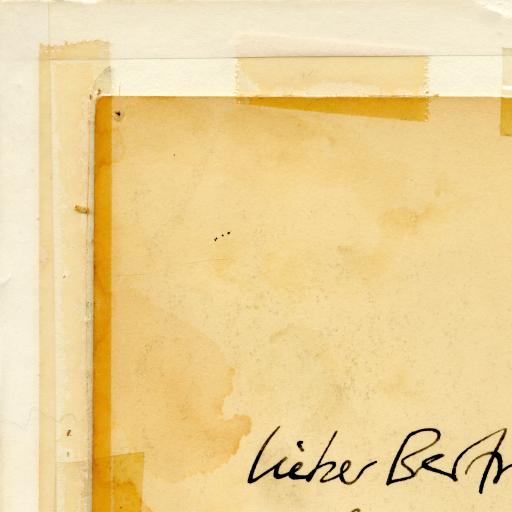 lieber Bertr